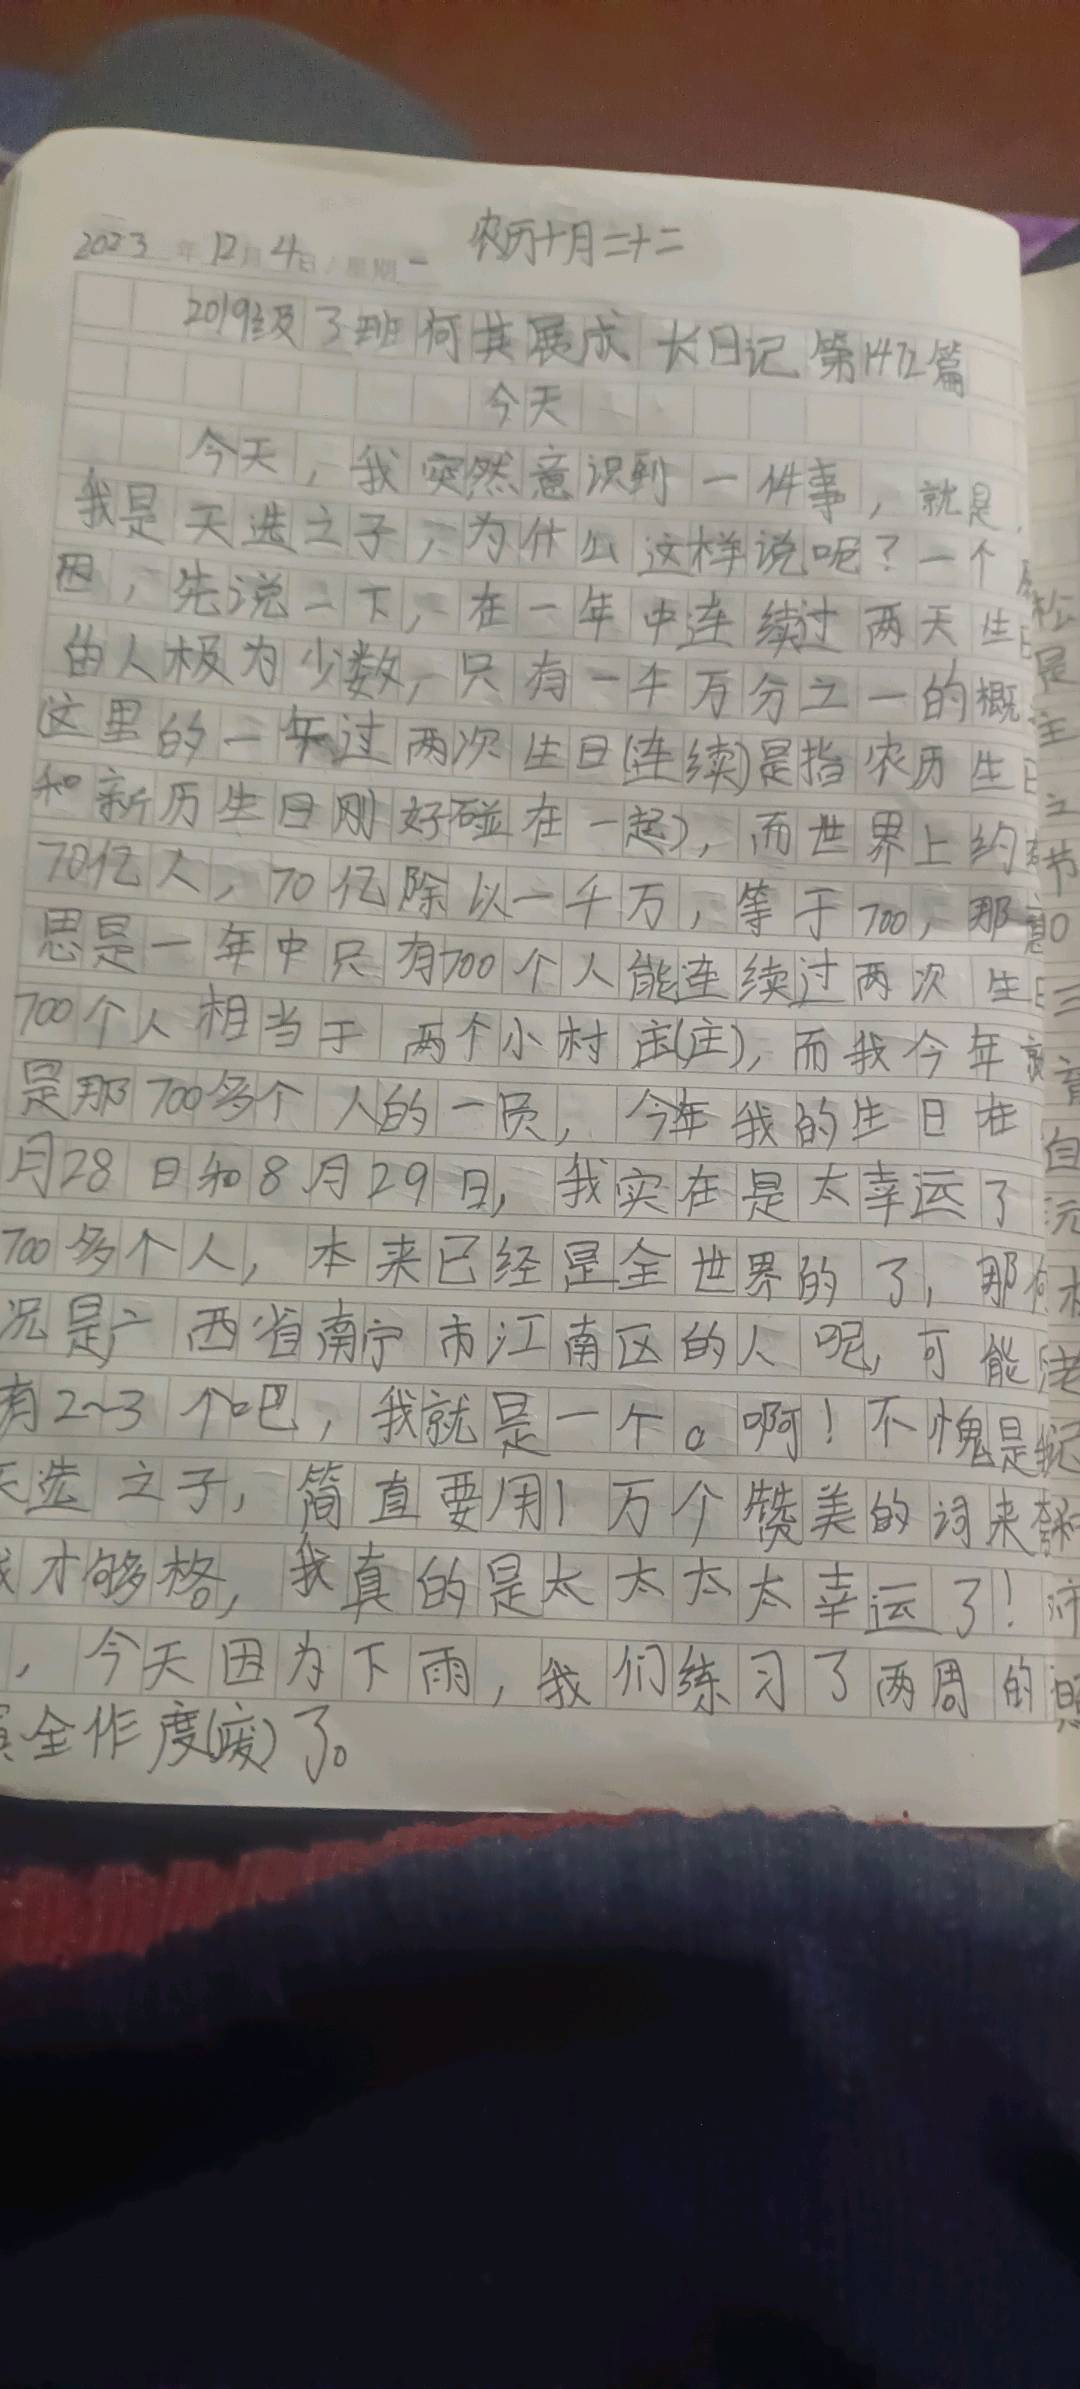 2023年12月4日/星期一 农历十月二十二
2019级3班何其展成长日记第1472篇
今天
今天，我突然意识到一件事，就是，
我是天选之子，为什么这样说呢？一个
因，先说一下，在一年中连续过两天生日
的人极为少数，只有一千万分之一的概
这里的一年过两次生日(连续)是指农历生日
和新历生日刚好碰在一起)，而世界上约有
70亿人，70亿除以一千万，等于700，那意
思是一年中只有700个人能连续过两次生日
700个人相当于两个小村庄(庄)，而我今年就
是那700多个人的一员，今年我的生日在
月28日和8月29日，我实在是太幸运了
700多个人，本来已经是全世界的了，那何
况是广西省南宁市江南区的人呢，可能
有2~3个吧，我就是一个。啊！不愧是
天选之子，简直要用1万个赞美的词来
我才够格，我真的是太太太太幸运了！
，今天因为下雨，我们练习了两周的
全作度(废)了。